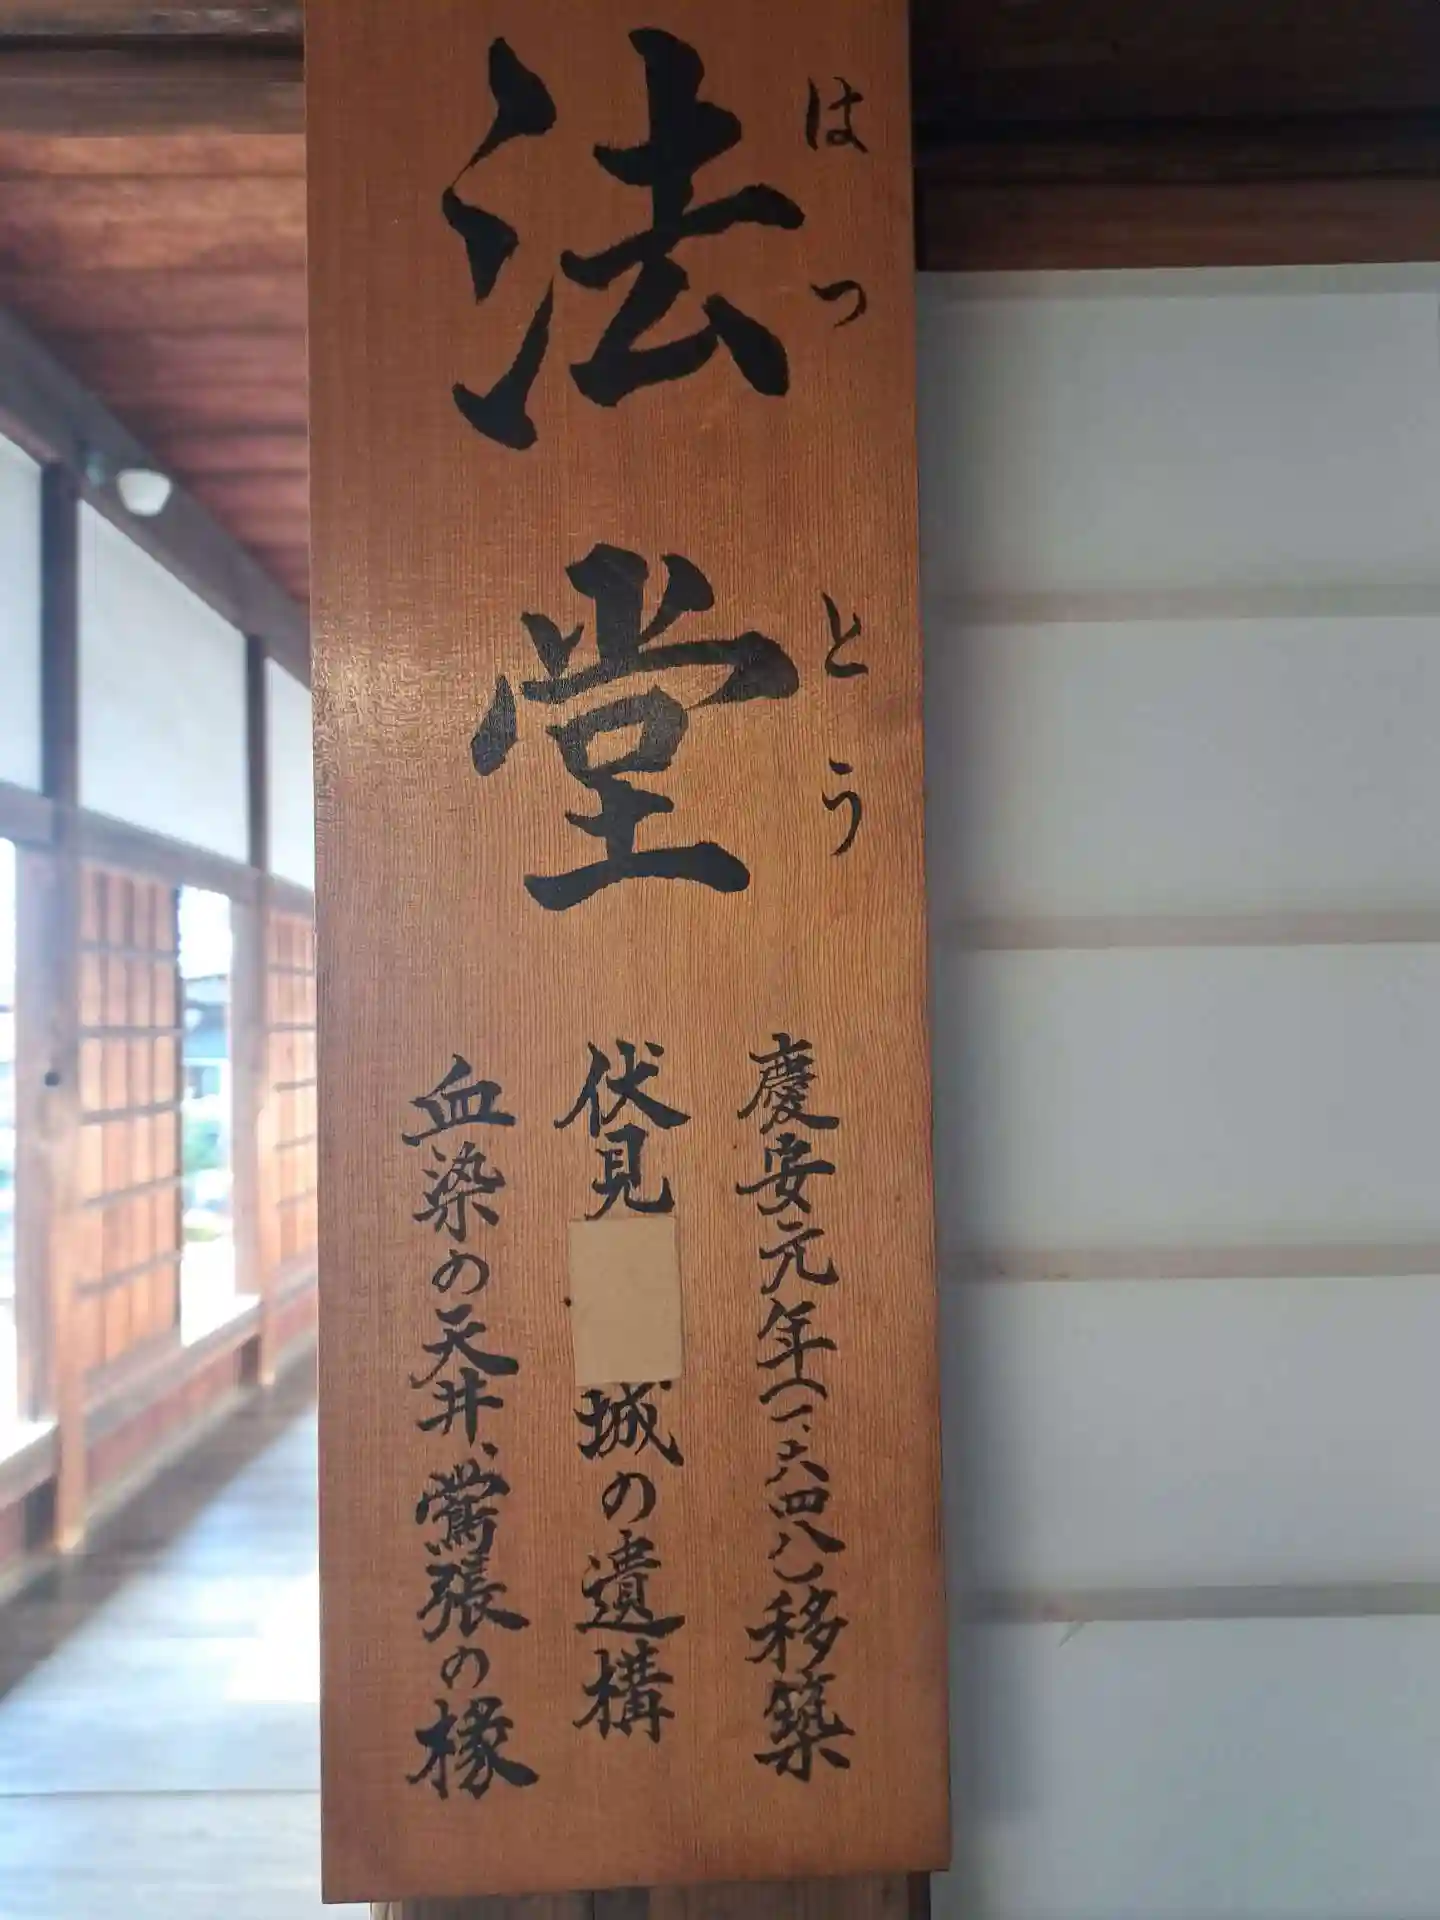 法堂
はっとう
慶安元年(一、六四八)移築
伏見城の遺構
血染の天井、鶯張の椽